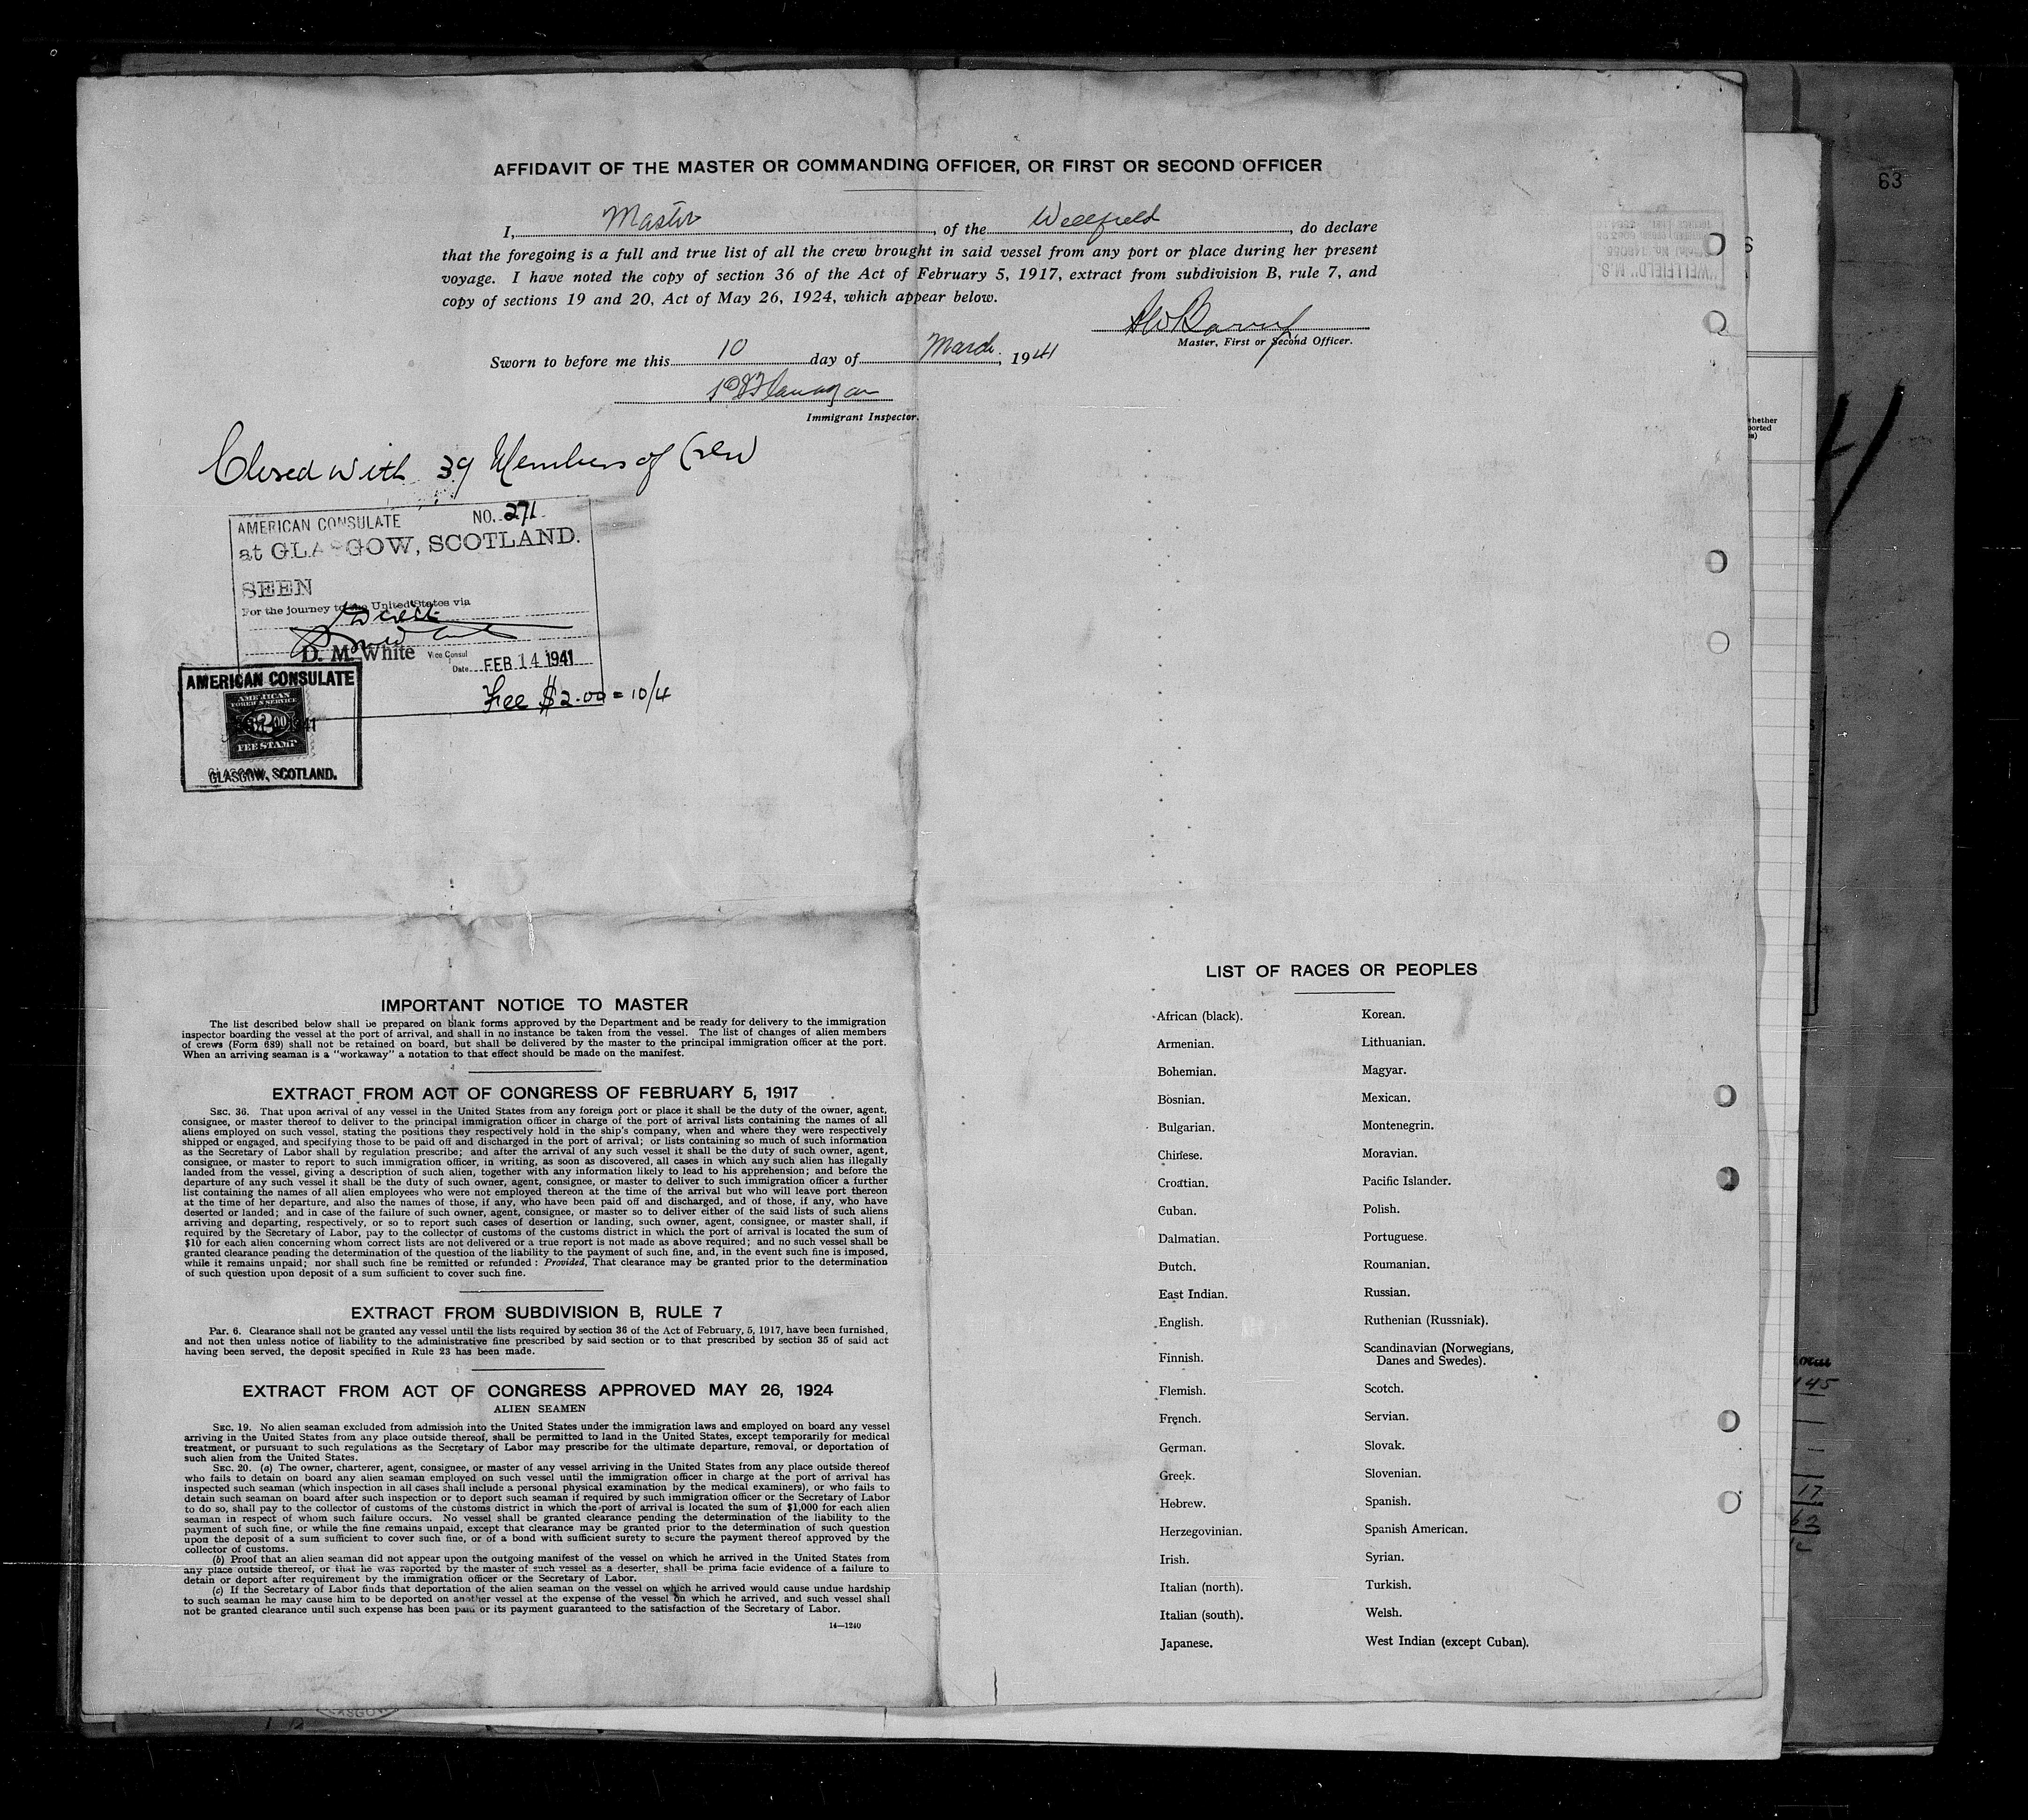 AFFIDAVIT OF THE MASTER OR COMMANDING OFFICER, OR FIRST OR SECOND OFFICER
I, Master, of the Wellfield, do declare
that the foregoing is a full and true list of all the crew brought in said vessel from any port or place during her present
voyage. I have noted the copy of section 36 of the Act of February 5, 1917, extract from subdivision B, rule 7, and
copy of sections 19 and 20, Act of May 26, 1924, which appear below.
Master, First or Second Officer.
Sworn to before me this 10 day of March, 1941
Flanagan
Immigrant Inspector.
Closed with 39 Members of Crew
AMERICAN CONSULATE NO. 271
at GLASGOW, SCOTLAND.
SEEN
For the journey to the United States via
D. M. White Vice Consul
Date FEB 14 1941
Fee $2.00 = 10/4
AMERICAN CONSULATE
AMERICAN
FOREIGN SERVICE
FEE STAMP
GLASGOW, SCOTLAND.
"WELLFIELD" M.S.
63
IMPORTANT NOTICE TO MASTER
The list described below shall be prepared on blank forms approved by the Department and be ready for delivery to the immigration
inspector boarding the vessel at the port of arrival, and shall in no instance be taken from the vessel. The list of changes of alien members
of crews (Form 689) shall not be retained on board, but shall be delivered by the master to the principal immigration officer at the port.
When an arriving seaman is a "workaway" a notation to that effect should be made on the manifest.
EXTRACT FROM ACT OF CONGRESS OF FEBRUARY 5, 1917
SEC. 36. That upon arrival of any vessel in the United States from any foreign port or place it shall be the duty of the owner, agent,
consignee, or master thereof to deliver to the principal immigration officer in charge of the port of arrival lists containing the names of all
aliens employed on such vessel, stating the positions they respectively hold in the ship's company, when and where they were respectively
shipped or engaged, and specifying those to be paid off and discharged in the port of arrival; or lists containing so much of such information
as the Secretary of Labor shall by regulation prescribe; and after the arrival of any such vessel it shall be the duty of such owner, agent,
consignee, or master to report to such immigration officer, in writing, as soon as discovered, all cases in which any such alien has illegally
landed from the vessel, giving a description of such alien, together with any information likely to lead to his apprehension; and before the
departure of any such vessel it shall be the duty of such owner, agent, consignee, or master to deliver to such immigration officer a further
list containing the names of all alien employees who were not employed thereon at the time of the arrival but who will leave port thereon
at the time of her departure, and also the names of those, if any, who have been paid off and discharged, and of those, if any, who have
deserted or landed; and in case of the failure of such owner, agent, consignee, or master so to deliver either of the said lists of such aliens
arriving and departing, respectively, or so to report such cases of desertion or landing, such owner, agent, consignee, or master shall, if
required by the Secretary of Labor, pay to the collector of customs of the customs district in which the port of arrival is located the sum of
$10 for each alien concerning whom correct lists are not delivered or a true report is not made as above required; and no such vessel shall be
granted clearance pending the determination of the question of the liability to the payment of such fine, and, in the event such fine is imposed,
while it remains unpaid; nor shall such fine be remitted or refunded: Provided, That clearance may be granted prior to the determination
of such question upon deposit of a sum sufficient to cover such fine.
EXTRACT FROM SUBDIVISION B, RULE 7
Par. 6. Clearance shall not be granted any vessel until the lists required by section 36 of the Act of February, 5, 1917, have been furnished,
and not then unless notice of liability to the administrative fine prescribed by said section or to that prescribed by section 35 of said act
having been served, the deposit specified in Rule 23 has been made.
EXTRACT FROM ACT OF CONGRESS APPROVED MAY 26, 1924
ALIEN SEAMEN
SEC. 19. No alien seaman excluded from admission into the United States under the immigration laws and employed on board any vessel
arriving in the United States from any place outside thereof, shall be permitted to land in the United States, except temporarily for medical
treatment, or pursuant to such regulations as the Secretary of Labor may prescribe for the ultimate departure, removal, or deportation of
such alien from the United States.
SEC. 20. (a) The owner, charterer, agent, consignee, or master of any vessel arriving in the United States from any place outside thereof
who fails to detain on board any alien seaman employed on such vessel until the immigration officer in charge at the port of arrival has
inspected such seaman (which inspection in all cases shall include a personal physical examination by the medical examiners), or who fails to
detain such seaman on board after such inspection or to deport such seaman if required by such immigration officer or the Secretary of Labor
to do so, shall pay to the collector of customs of the customs district in which the port of arrival is located the sum of $1,000 for each alien
seaman in respect of whom such failure occurs. No vessel shall be granted clearance pending the determination of the liability to the
payment of such fine, or while the fine remains unpaid, except that clearance may be granted prior to the determination of such question
upon the deposit of a sum sufficient to cover such fine, or of a bond with sufficient surety to secure the payment thereof approved by the
collector of customs.
(b) Proof that an alien seaman did not appear upon the outgoing manifest of the vessel on which he arrived in the United States from
any place outside thereof, or that he was reported by the master of such vessel as a deserter, shall be prima facie evidence of a failure to
detain or deport after requirement by the immigration officer or the Secretary of Labor.
(c) If the Secretary of Labor finds that deportation of the alien seaman on the vessel on which he arrived would cause undue hardship
to such seaman he may cause him to be deported on another vessel at the expense of the vessel on which he arrived, and such vessel shall
not be granted clearance until such expense has been paid or its payment guaranteed to the satisfaction of the Secretary of Labor.
14—1240
LIST OF RACES OR PEOPLES
African (black). Korean.
Armenian. Lithuanian.
Bohemian. Magyar.
Bosnian. Mexican.
Bulgarian. Montenegrin.
Chinese. Moravian.
Croatian. Pacific Islander.
Cuban. Polish.
Dalmatian. Portuguese.
Dutch. Roumanian.
East Indian. Russian.
English. Ruthenian (Russniak).
Finnish. Scandinavian (Norwegians,
Danes and Swedes).
Flemish. Scotch.
French. Servian.
German. Slovak.
Greek. Slovenian.
Hebrew. Spanish.
Herzegovinian. Spanish American.
Irish. Syrian.
Italian (north). Turkish.
Italian (south). Welsh.
Japanese. West Indian (except Cuban).